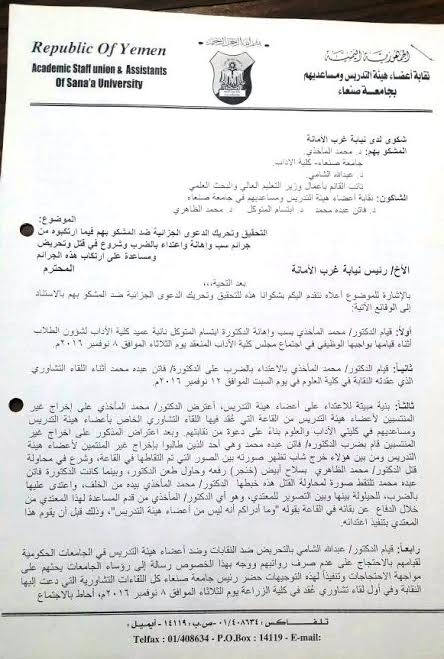 بسم الله الرحمن الرحيم
Republic Of Yemen
Academic Staff union & Assistants
Of Sana'a University
الجمهورية اليمنية
نقابة أعضاء هيئة التدريس ومساعديهم
بجامعة صنعاء
شكوى لدى نيابة غرب الأمانة
المشكو بهم: د. محمد المأخذي
جامعة صنعاء- كلية الآداب
د. عبدالله الشامي
نائب القائم بأعمال وزير التعليم العالي والبحث العلمي
الشاكون: نقابة أعضاء هيئة التدريس ومساعديهم في جامعة صنعاء
د. فاتن عبده محمد د. ابتسام المتوكل د. محمد الظاهري
الموضوع:
التحقيق وتحريك الدعوى الجزائية ضد المشكو بهم فيما ارتكبوه من
جرائم سب وإهانة واعتداء بالضرب وشروع في قتل وتحريض
ومساعدة على ارتكاب هذه الجرائم
الأخ/ رئيس نيابة غرب الأمانة المحترم
بعد التحية،،،
بالإشارة للموضوع أعلاه نتقدم اليكم بشكوانا هذه للتحقيق وتحريك الدعوى الجزائية ضد المشكو بهم بالاستناد
إلى الوقائع الآتية:
أولاً: قيام الدكتور/ محمد المأخذي بسب وإهانة الدكتورة ابتسام المتوكل نائبة عميد كلية الآداب لشؤون الطلاب
أثناء قيامها بواجبها الوظيفي في اجتماع مجلس كلية الآداب المنعقد يوم الثلاثاء الموافق ٨ نوفمبر ٢٠١٦م.
ثانياً: قيام الدكتور/ محمد المأخذي بالاعتداء بالضرب على الدكتورة/ فاتن عبده محمد أثناء اللقاء التشاوري
الذي عقدته النقابة في كلية العلوم في يوم السبت الموافق ١٢ نوفمبر ٢٠١٦م.
ثالثاً: بنية مبيتة للاعتداء على أعضاء هيئة التدريس، أعترض الدكتور/ محمد المأخذي على إخراج غير
المنتسبين لأعضاء هيئة التدريس من القاعة التي عُقد فيها اللقاء التشاوري الخاص بأعضاء هيئة التدريس
ومساعديهم في كليتي الآداب والعلوم بناءً على دعوة من نقابتهم. وبعد اعتراض المذكور على إخراج غير
المنتسبين قام بضرب الدكتورة/ فاتن عبده محمد وهي أحد الذين طالبوا بإخراج غير المنتمين لأعضاء هيئة
التدريس ومن بين هؤلاء خرج شاب تظهر صورته بين الصور التي تم التقاطها في القاعة، وشرع في محاولة
قتل الدكتور/ محمد الظاهري بسلاح أبيض (خنجر) رفعه وحاول طعن الدكتور، وبينما كانت الدكتورة فاتن
عبده محمد تلتقط صورة لمحاولة القتل هذه خبطها الدكتور/ محمد المأخذي بيده من الخلف، واعتدى عليها
بالضرب، للحيلولة بينها وبين التصوير للمعتدي، وهو أي الدكتور/ المأخذي من قدم المساعدة لهذا المعتدي من
خلال الدفاع عن بقائه في القاعة بقوله "وما أدراكم أنه ليس من أعضاء هيئة التدريس"، وذلك قبل أن يقوم هذا
المعتدي بتنفيذ اعتدائه.
رابعاً: قيام الدكتور/ عبدالله الشامي بالتحريض ضد النقابات وضد أعضاء هيئة التدريس في الجامعات الحكومية
لقيامهم بالاحتجاج على عدم صرف رواتبهم ووجه بهذا الخصوص رسالة إلى رؤساء الجامعات يحثهم على
مواجهة الاحتجاجات وتنفيذاً لهذه التوجيهات حضر رئيس جامعة صنعاء كل اللقاءات التشاورية التي دعت إليها
النقابة وفي أول لقاء تشاوري عُقد في كلية الزراعة يوم الثلاثاء الموافق ٨ نوفمبر ٢٠١٦م، أحاط بالاجتماع
تلفاكس: ٠١/٤٠٨٦٣٤ - ص.ب: ١٤١١٩ - أيميل:
Telfax : 01/408634 - P.O.Box : 14119 - E-mail: